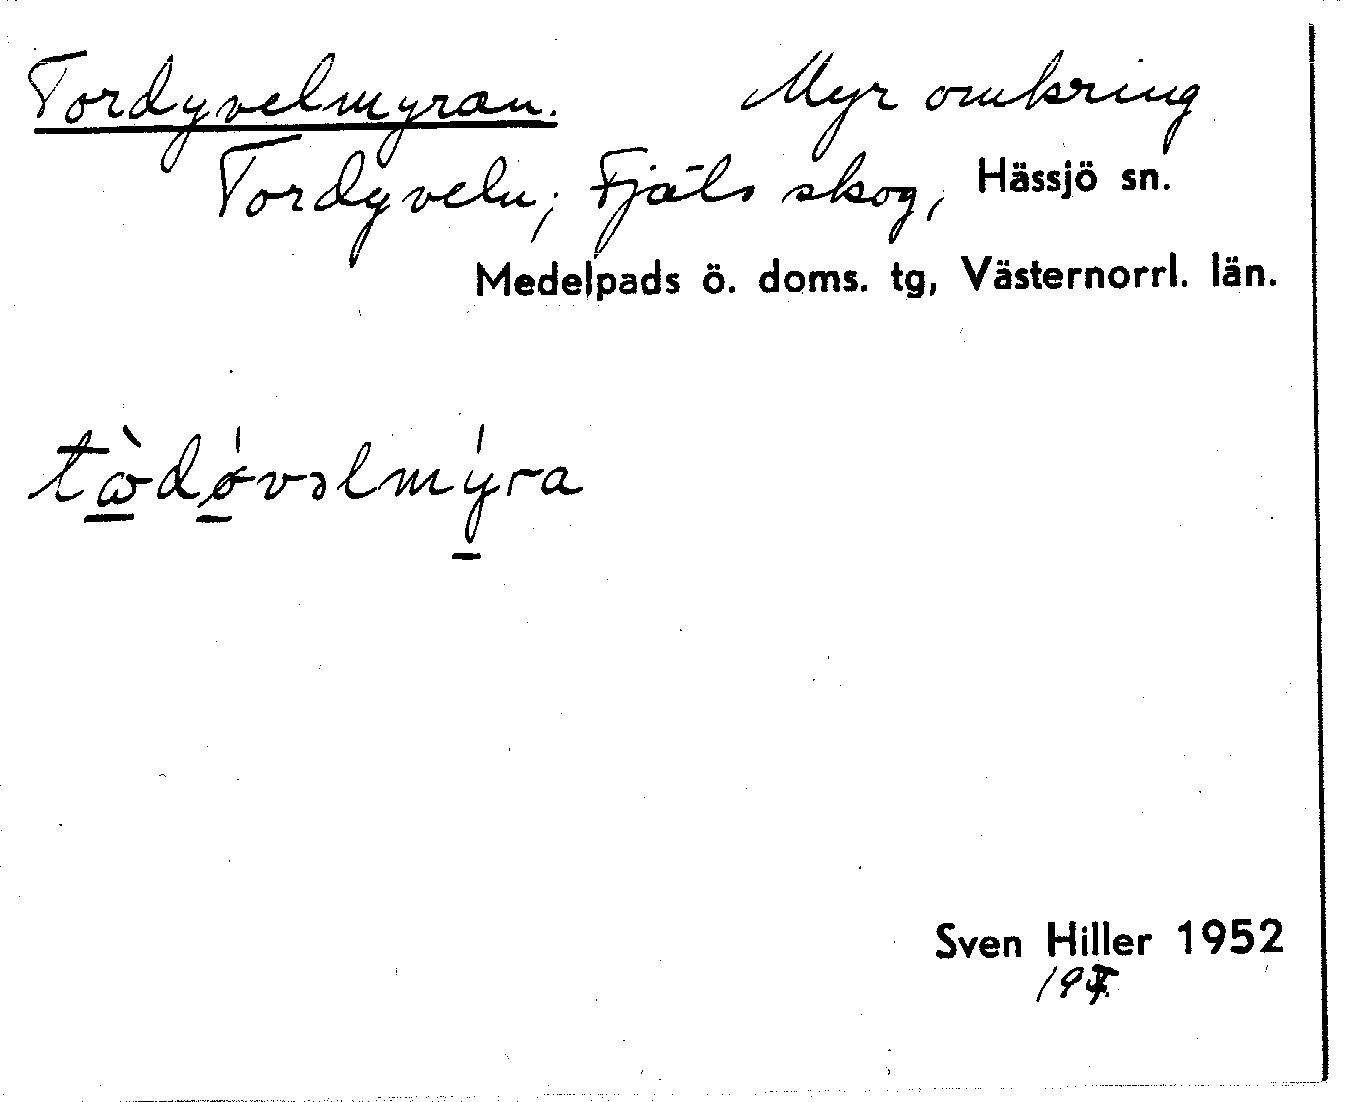 Tordyvelmyran. Myr omkring
Tordyveln; Fjäls skog, Hässjö sn.
Medelpads ö. doms. tg, Västernorrl. län.
tꞷ̀dǿvəlmýra
Sven Hiller 1952